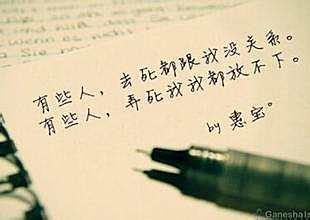 有些人，去死都跟我没关系。
有些人，弄死我我都放不下。
by 惠宝。